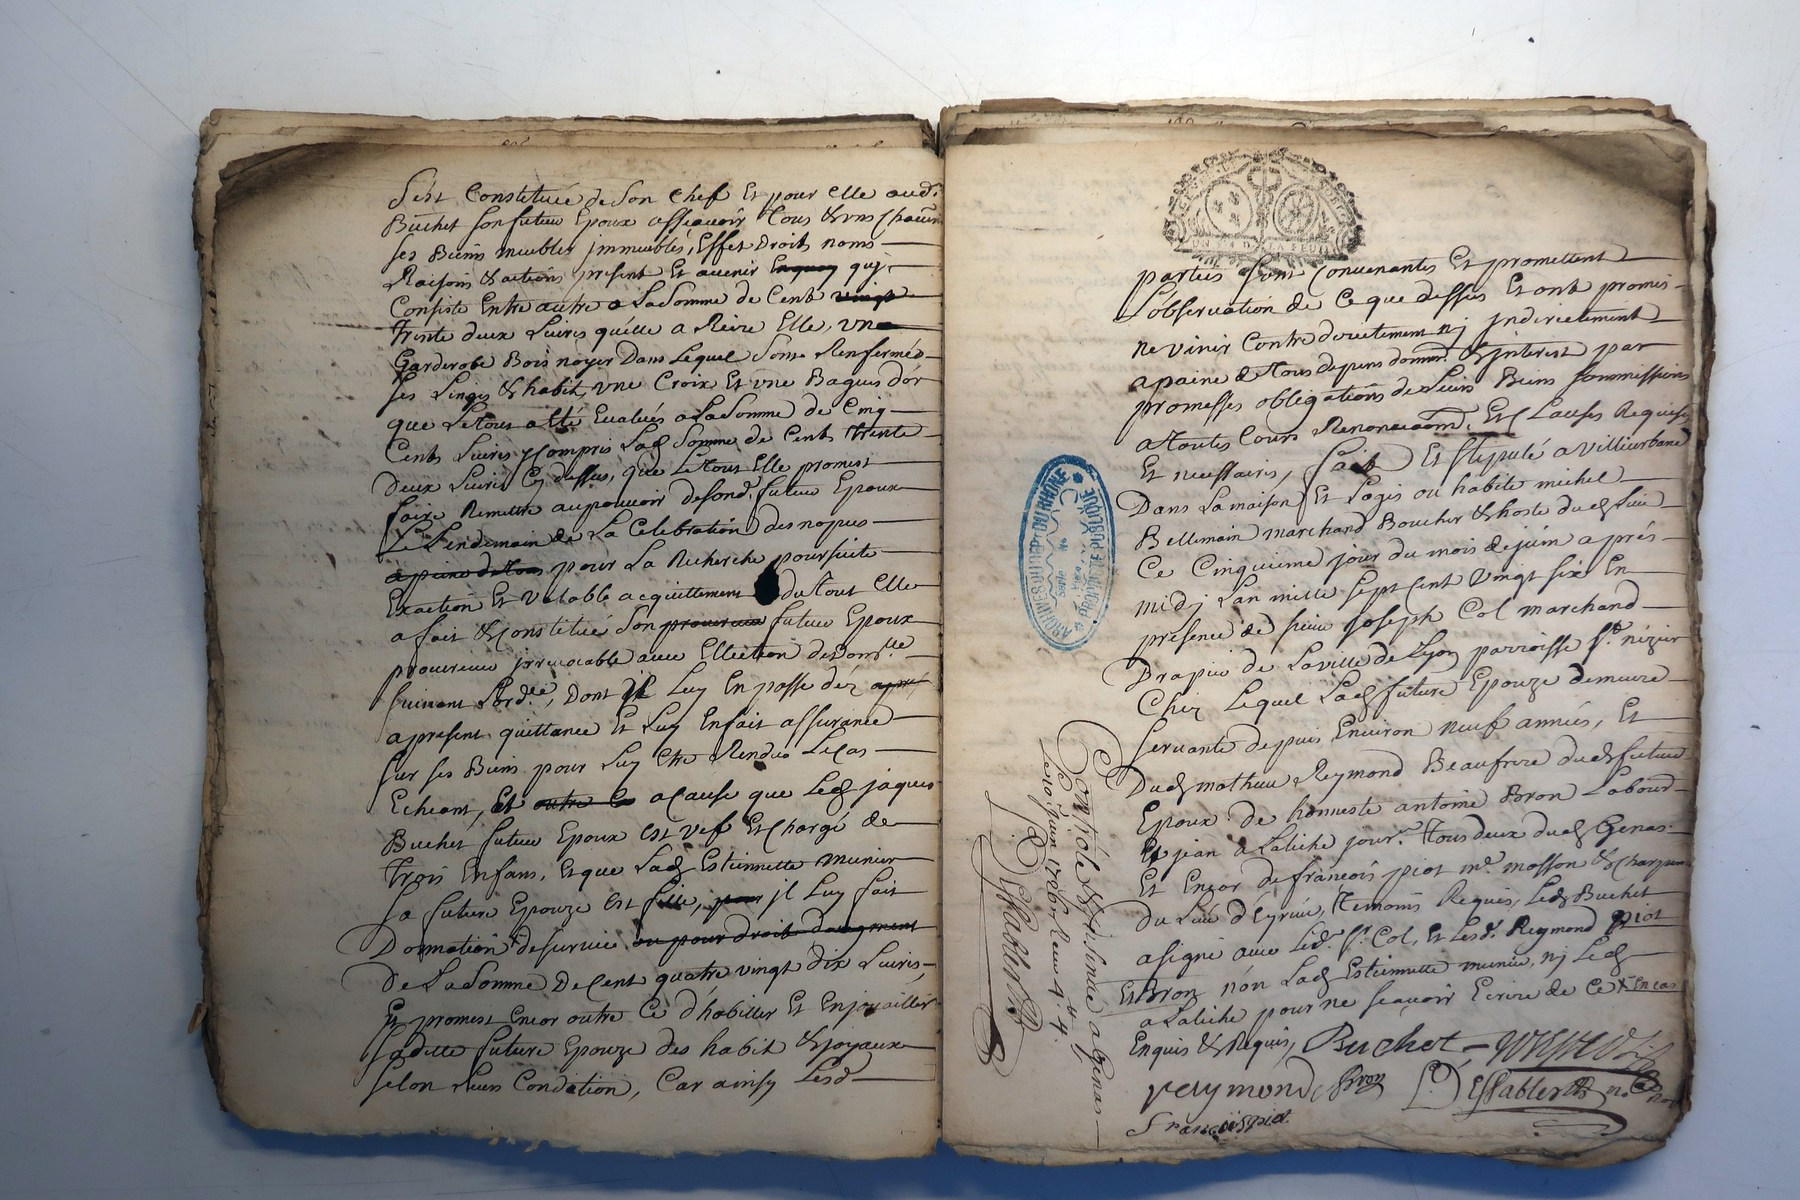 S'est Constituée de Son Chef Et pour Elle aud.
Buchet Son futeur Epoux assçavoir Tous & uns Chacuns
ses Biens meubles jmmeubles, Effet Droits noms
Raisons & actions present Et avenir qui
Consiste Entre autre a La Somme de Cent
trente deux Livres quelle a Rière Elle, une
Garderobe Bois noyer Dans Lequel Sont Renfermés
ses Linges & habit, une Croix Et une Bague d'or
que Le tout a Eté Evalués a La Somme de Cinq
Cents Livres y compris Lad Somme de Cents trente
Deux Livres Cy dessus, que Le tout Elle promest
faire Remettre au pouvoir de sond. futeur Epoux
Le Lendemain de La Celebration des nopces
a peine de tous pour La Recherche poursuite
Exaction Et Valable acquittement du tout Elle
a fait & Constitué Son procureur futeur Epoux
procureur jrrevocable avec Ellection de dom.lle
suivant L'ord.ce, Dont jl Luy En passe dez apre
a present quittance Et Luy En fait assurance
sur ses Biens pour Luy Etre Rendus Le Cas
Echeant, Et outre Ce a Cause que Led jaques
Buchet futeur Epoux est Vef Et Chargé de
Trois Enfans, Et que Lad Estiennette munier
Sa future Epouze Est fille, pour jl Luy fait
Donnation de survie ou pour droit d'augment
De La Somme De Cent quatre vingt dix Livres,
Et promest Encor outre Ce d'habiller Et Enjouailler
Sa ditte future Epouze des habit & joyaux
selon Leurs Condition, Car ainsy Lesd
parties sont Convenantes Et promettent
L'observation de Ce que dessus Et ont promis
ne Venir Contre directement nj jndirectement
a paine de Tous depens domm. & jnterest par
promesses obligations de Leurs Biens soummissions
a Toutes Cours Renonciaōns. Et Clauses Requises
Et necessaires, fait Et stipulé a Villieurbane
Dans La maison Et Logis ou habite michel
Bellemain marchand Boucher & hoste dud Lieu
Ce Cinquieme jour du mois de juin aprés
midj L'an mille sept Cent Vingt six En
presence de sieur joseph Col marchand
Drapier de La ville de Lyon parroisse St. nézier
Chez Lequel Lad future Epouze demeure
servante depuis Environ neuf années, Et
Dud mathieu Reymond Beaufrere dud futeur
Epoux de honneste antoine Bron Labour.
Et jean a Laliche jour.r Tous deux dud Genas
Et Encor de françois piot m.e masson & Charpen
du Lieu d'Eyrieu, Temoins Requis, Led Buchet
a signé avec Led. Sr. Col, Et Lesd. Reymond piot
Et Bron non Lad Estiennette munier, nj Led
a Laliche pour ne sçavoir Ecrire de Ce
Enquis & Requis, Buchet
reymond Bron Essablent no.re
francois piot
Controlé & Insinué a Genas
Le 10 juin 1726 Receu 4
Essablent
ARCHIVES DU DEPT DU RHONE
PROPRIETE PUBLIQUE